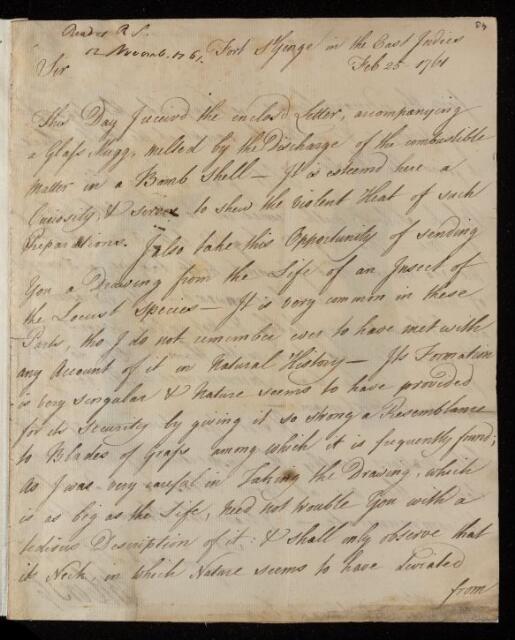 Read at R S.
12 Novemb. 1761.
Fort St George in the East Indies
Feb 25 1761
Sir
This Day I receivd the enclosd Letter, accompanying
a Glass Mugg, melted by the Discharge of the combustible
matter in a Bomb Shell — It is esteemd here a
Curiosity & serves to shew the violent Heat of such
Preparations. I also take this Opportunity of sending
You a Drawing from the Life of an Insect of
the Locust Species — It is very common in these
Parts, tho I do not remember ever to have met with
any Account of it in Natural History — Its Formation
is very singular & Nature seems to have provided
for its Security by giving it so strong a Resemblance
to Blades of Grass among which it is frequently found;
As I was very careful in taking the Drawing, which
is as big as the Life, need not trouble You with a
tedious Description of it: & shall only observe that
its Neck, in which Nature seems to have deviated
from